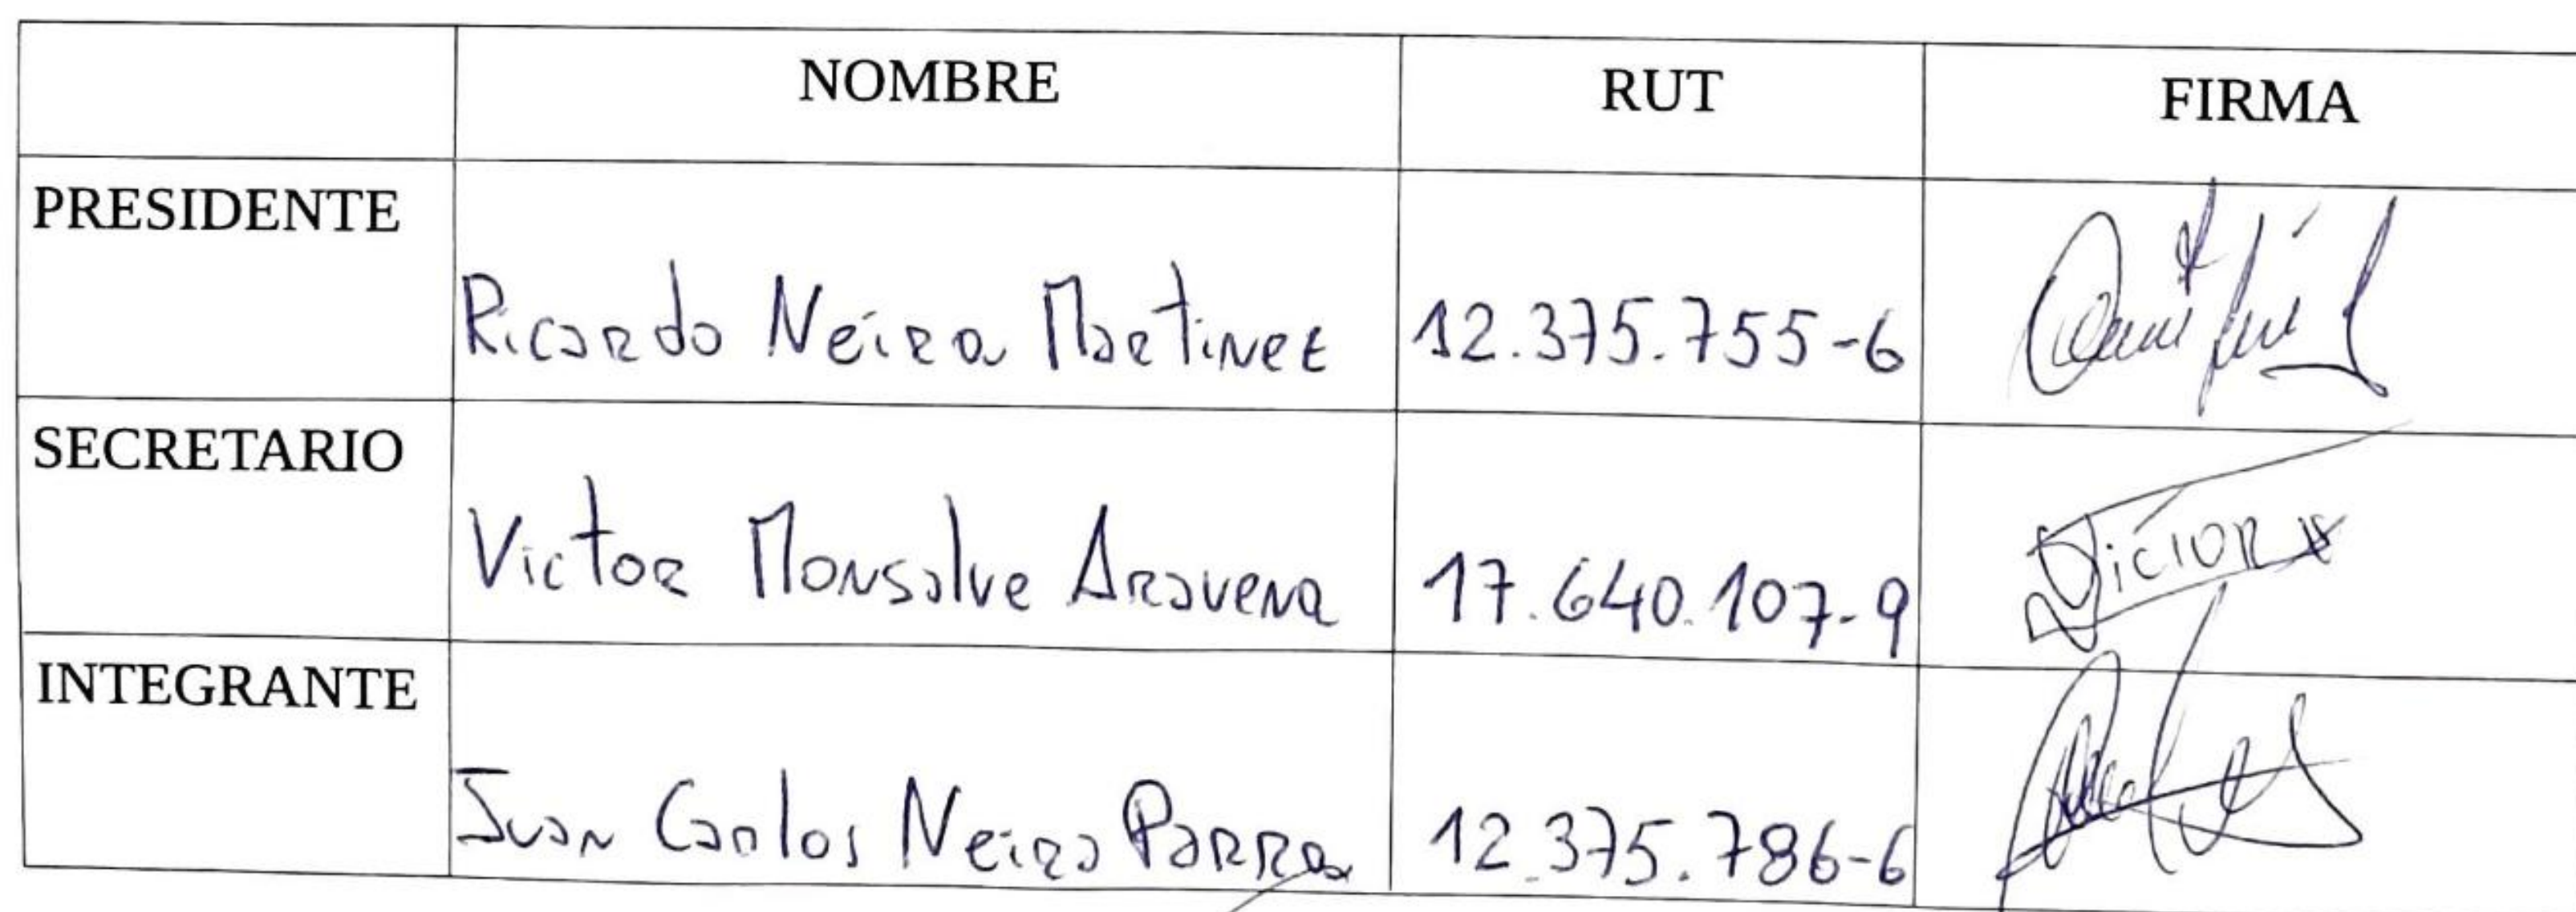 NOMBRE RUT FIRMA
PRESIDENTE
Ricardo Neira Martinez 12.375.755-6
SECRETARIO
Victor Monsalve Aravena 17.640.107-9 Victor
INTEGRANTE
Juan Carlos Neira Parra 12.375.786-6